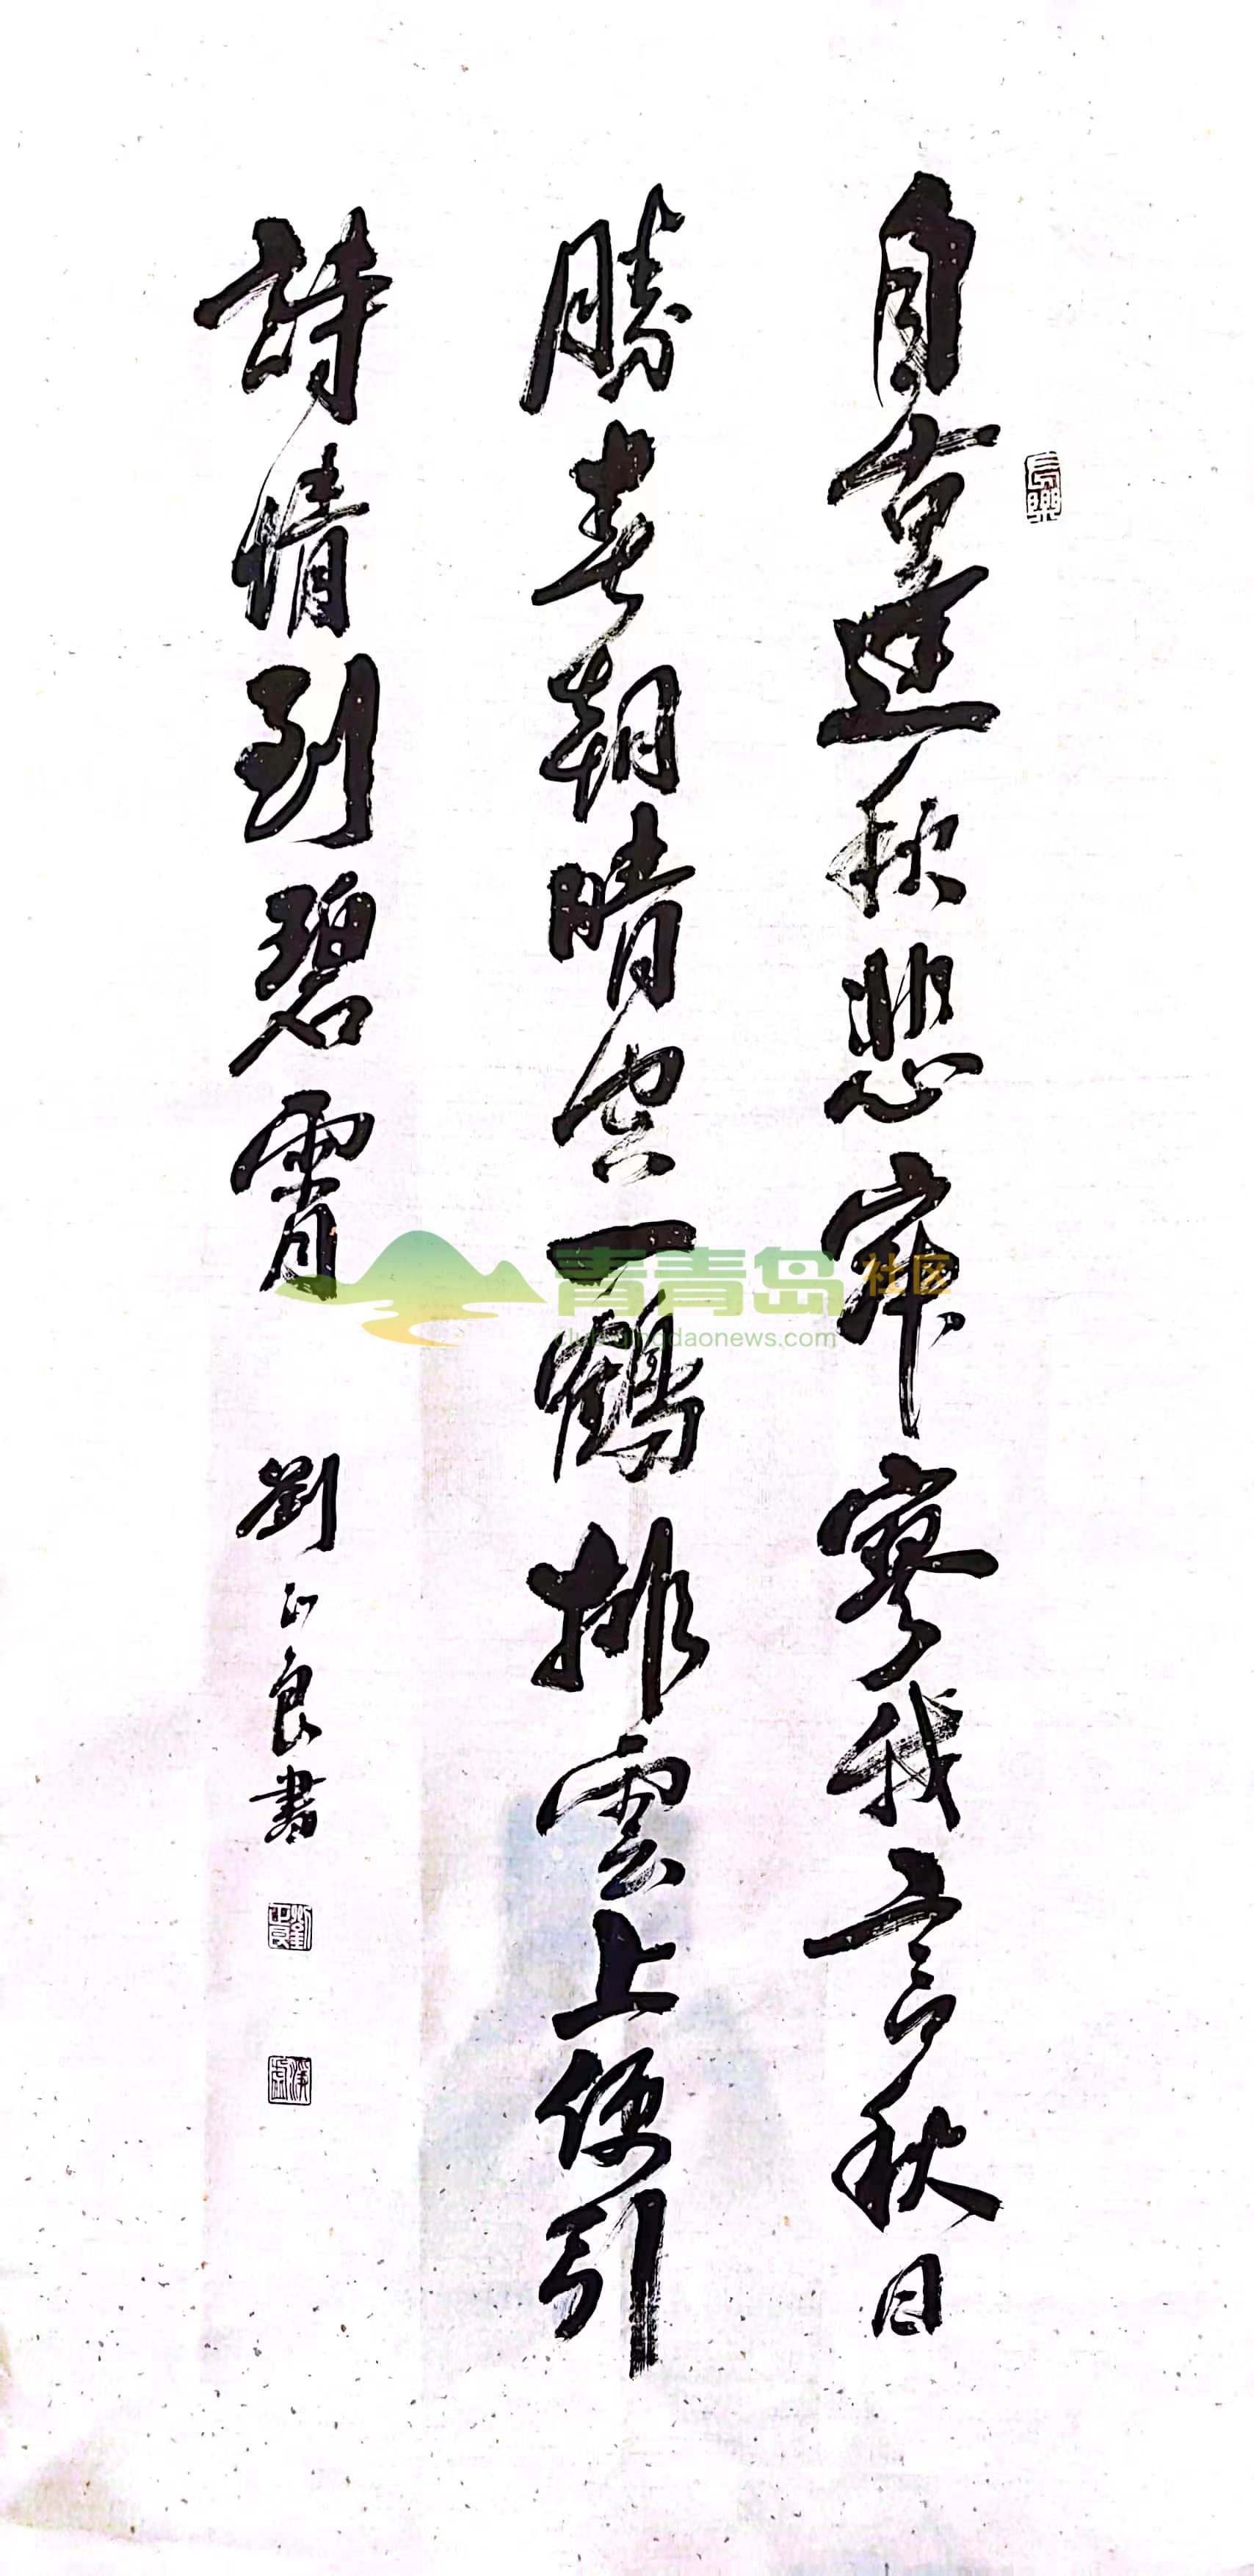 自古逢秋悲寂寥我言秋日
勝春朝晴空一鶴排雲上便引
詩情到碧霄
劉正良書
長樂
劉正良
青青岛社区
club.qingdaonews.com